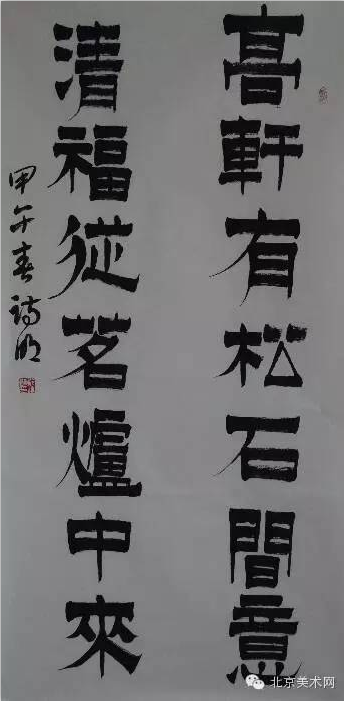 高軒有松石間意
清福從茗爐中來
甲午春诗明
北京美术网